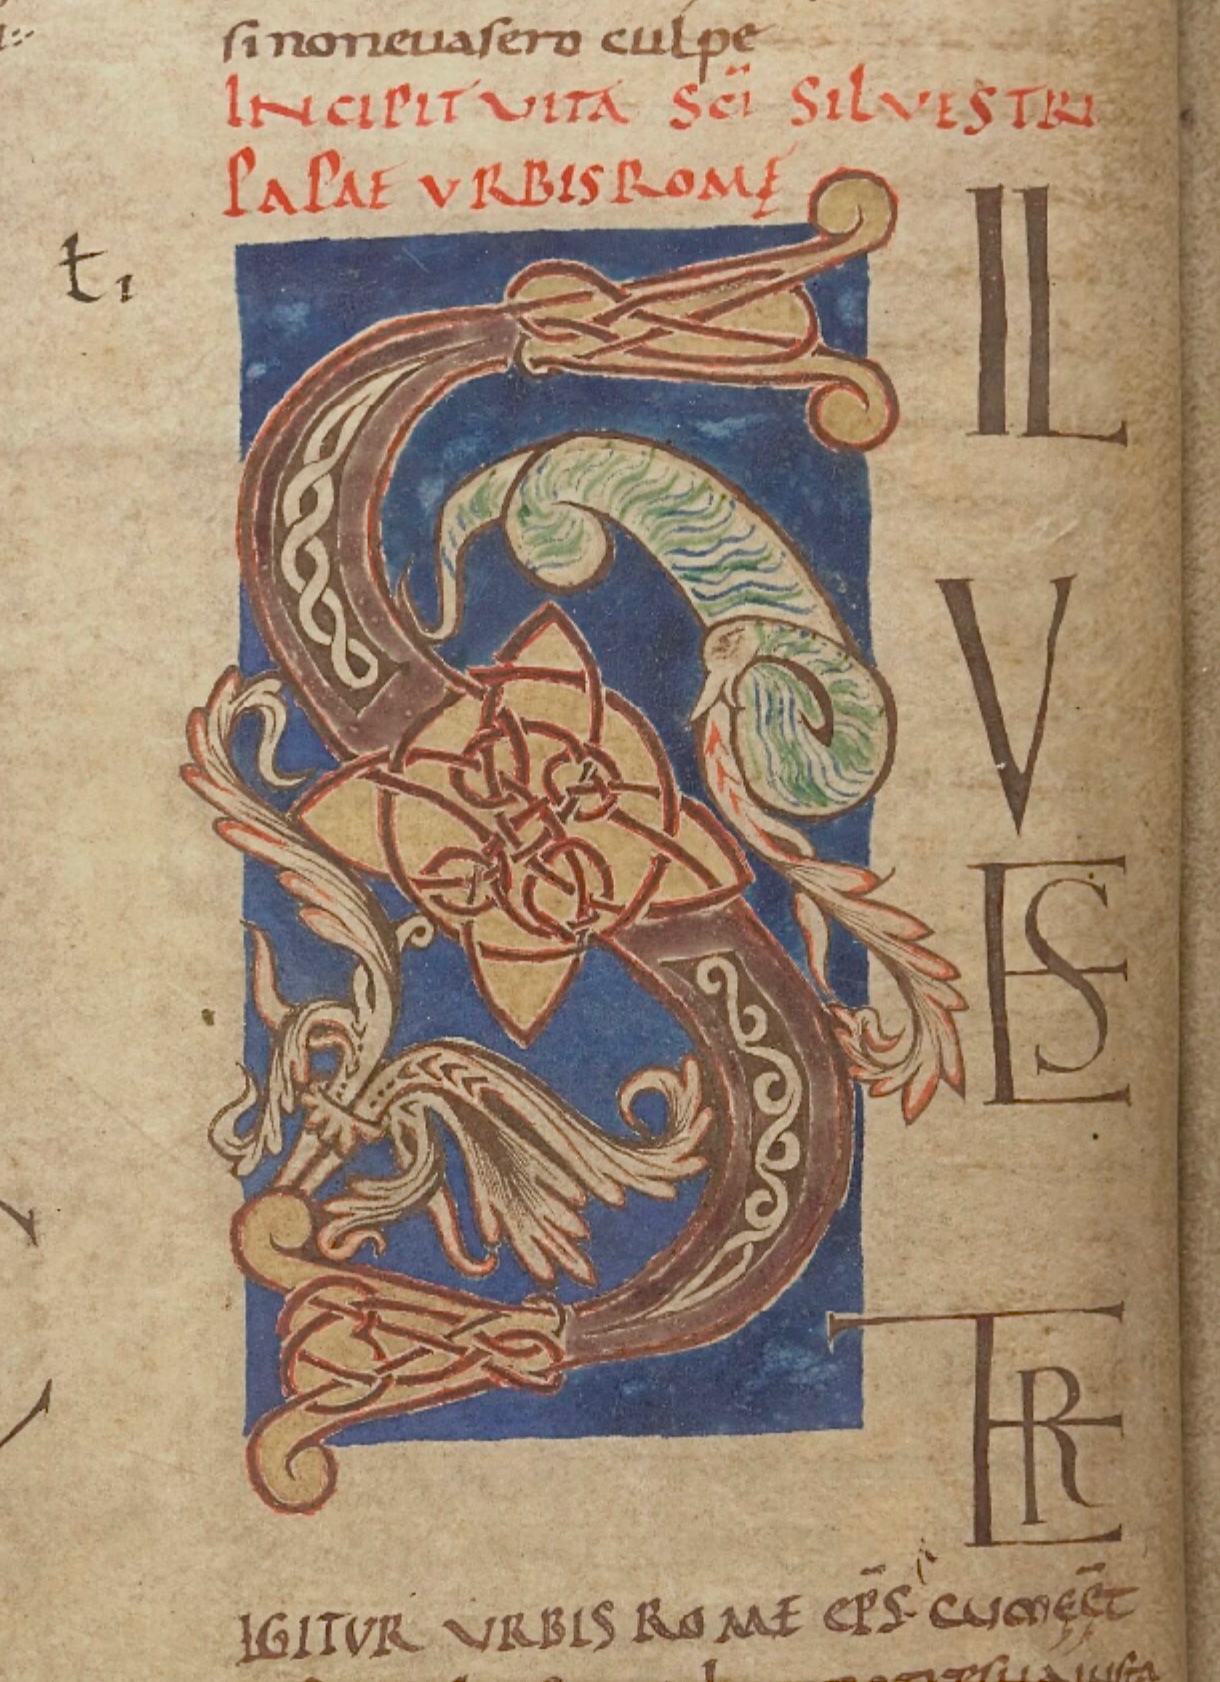 si non evasero culpe
INCIPIT VITA SC̄I SILVESTRI
PAPAE VRBIS ROMĘ
t,
S
IL
V
ES
TER
IGITVR VRBIS ROME EP̄S CUM